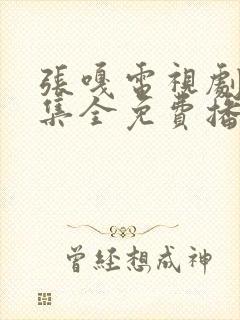 張嘎電視劇
集全免費播
曾经想成神